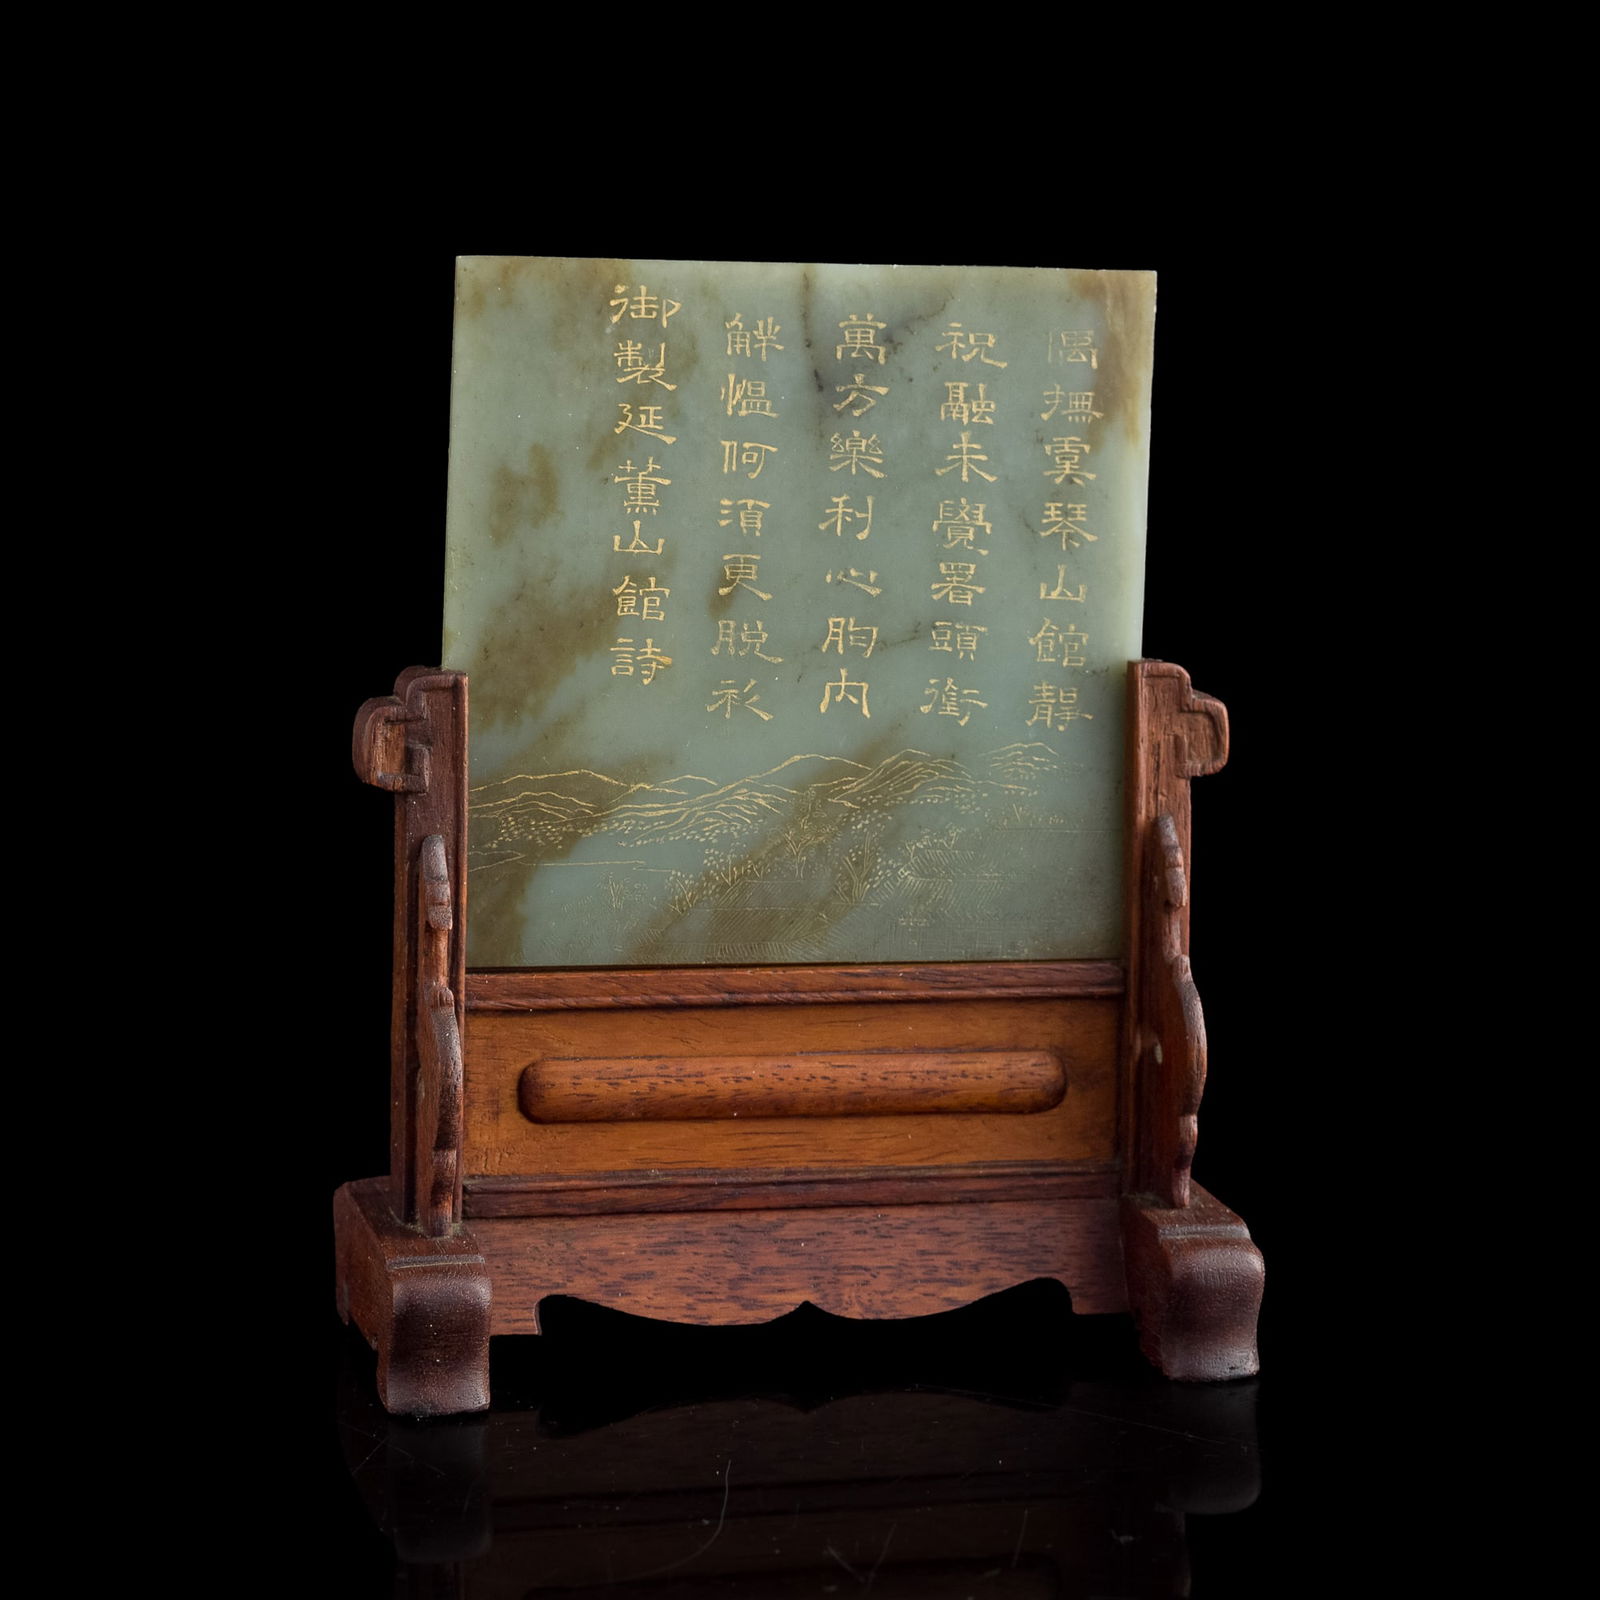 偶撫虞琴山館靜
祝融未覺署頭銜
萬方樂利心胸内
解慍何須更脱衫
御製延薰山館詩